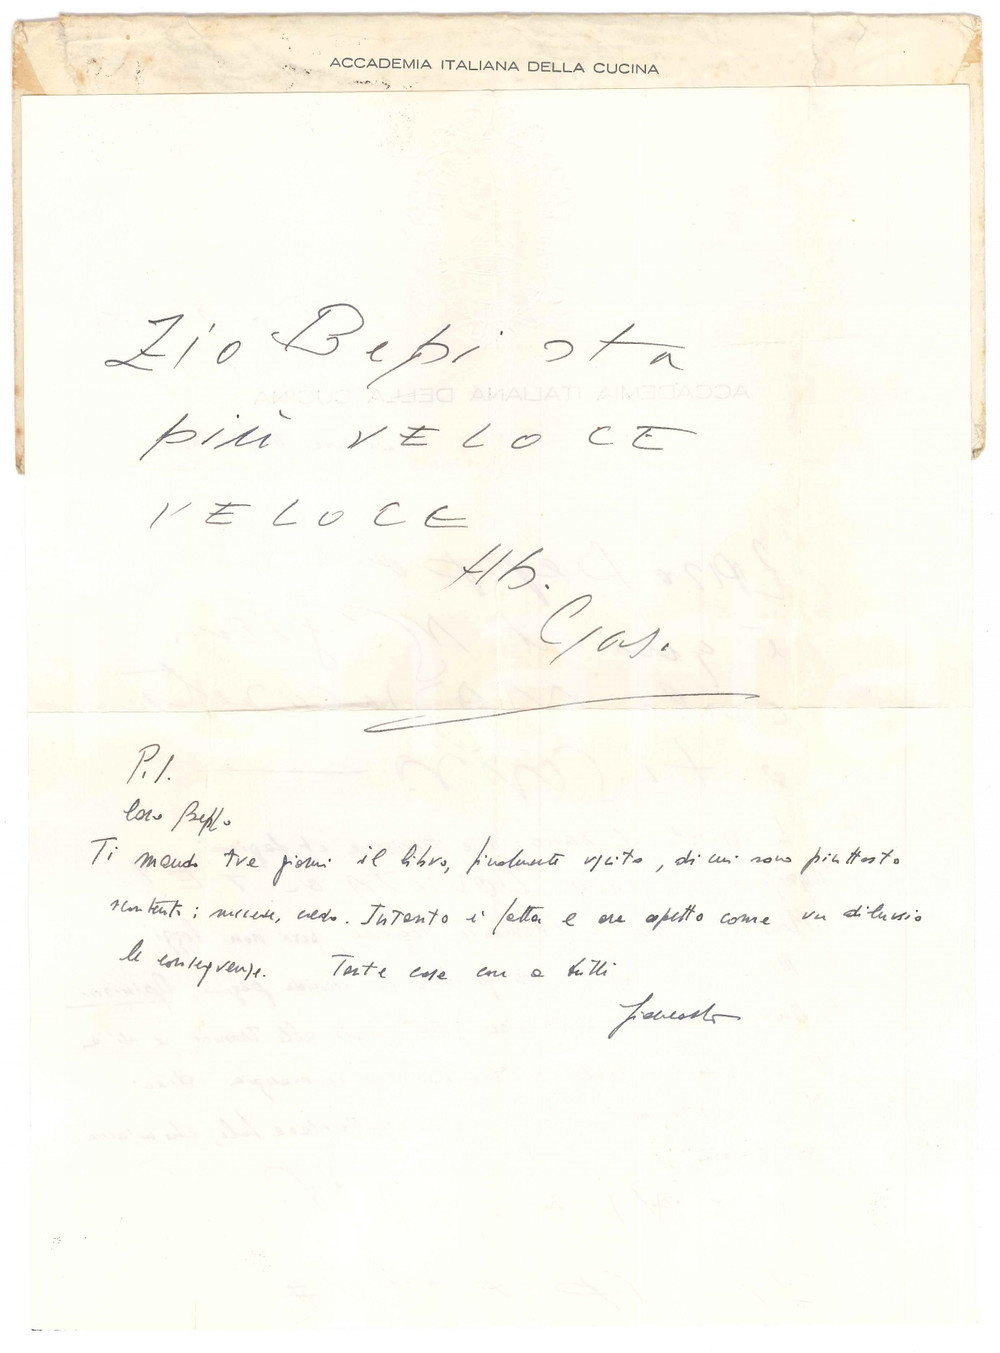 ACCADEMIA ITALIANA DELLA CUCINA
Zio Bepi sta
più VELOCE
VELOCE
Ab.
P.S.
Caro Beppo
Ti mando tre giorni il libro, finalmente uscito, di cui sono piuttosto
scontento; succede, credo. Intanto è fatta e ora aspetto come un diluvio
le conseguenze. Tante cose care a tutti